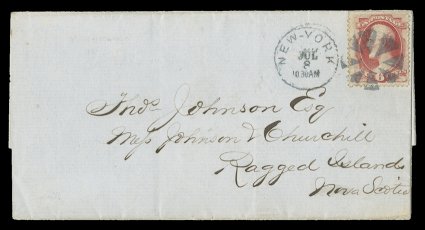 NEW-YORK
JUL
8
10.30AM
Jno. Johnson Esq
Mess Johnson & Churchill
Ragged Islands
Nova Scotia